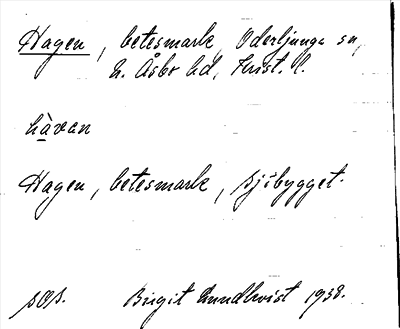 Hagen, betesmark, Oderljunga sn,
N. Åsbo hd, Krist. l.
hàvan
Hagen, betesmark, Sjöbygget.
sös.    Birgit Lundkvist 1938.